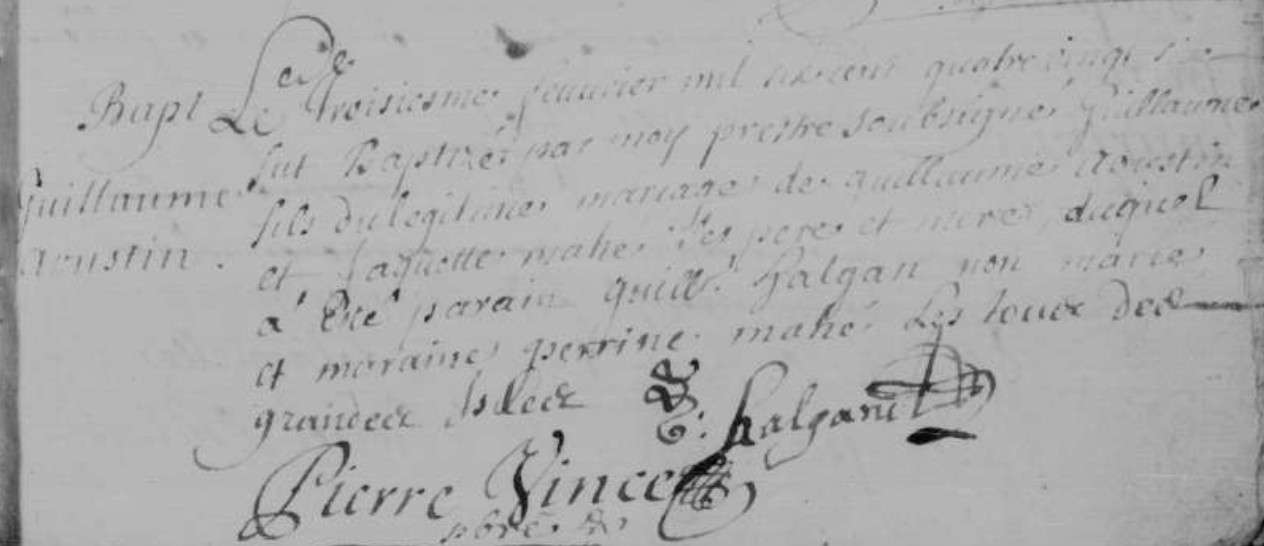 Bapt
Guillaume
Aoustin.
Le troisiesme januier mil six cent quatre vingt six
fut Baptizé par moy prestre soubsigné Guillaume
fils du legitime mariage de guillaume Aoustin
et Jaquette mahé ses pere et mere, duquel
a Eté parain guill. halgan non marié
et maraine perrine mahé Les touts des
grandes Isles
G. halgan
Pierre Vince
pbre